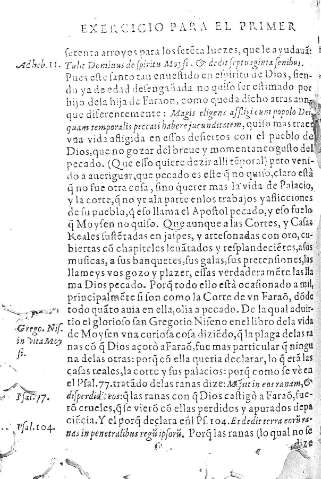 EXERCICIO PARA EL PRIMER
setenta arroyos para los setēta Iuezes, que le ayudavā:
Ad heb. 11.
Tulit Dominus de spiritu Moysi, & dedit septuaginta senibus.
Pues este santo tan envestido en espiritu de Dios, sien-
do ya de edad desengañada no quiso ser estimado por
hijo de la hija de Faraon, como queda dicho atras aun-
que diferentemente: Magis eligens affligi cum populo Dei
quam temporalis peccati habere jucunditatem, quiso mas traer
vna vida afligida en essos desertos con el pueblo de
Dios, que no gozar del breve y momentaneo gusto del
pecado. (Que esso quiere dezir alli tēporal) pero venī-
do a averiguar, que pecado es este q̄ no quiso, claro està
q̄ no fue otra cosa, sino querer mas la vida de Palacio,
y la corte, q̄ no yr a la parte en los trabajos y afliciones
de su pueblo, q̄ esso llama el Apostol pecado, y esso fue lo
q̄ Moysen no quiso. Que aunque a las Cortes, y Casas
Reales sustētadas en jaspes, y artesonadas con oro, cu-
biertas cō chapiteles levātados y resplandeciētes, a sus
musicas, a sus banquetes, sus galas, sus pretensiones, las
llameys vos gozo y plazer, essas verdaderamēte las lla
ma Dios pecado. Porq̄ todo ello està ocasionado a mil,
principalmēte si son como la Corte de vn Faraō, dōde
todo quāto avia en ella, olia a pecado. De la qual advir-
Grego. Nis.
tio el glorioso san Gregorio Niseno en el libro de la vida
in vita Moy
de Moysen vna curiosa cosa diziēdo, q̄ la plaga de las ra
si.
nas cō q̄ Dios açotò a Faraō, fue mas particular q̄ ningu
na de las otras: porq̄ cō ella queria declarar, lo q̄ erā las
casas reales, la corte y sus palacios: porq̄ como se vè en
Psal. 77.
el Psal. 77. tratādo de las ranas dize: Misit in eos ranam, &
disperdidit eos: q̄ las ranas con q̄ Dios castigò a Faraō, fue-
rō crueles, q̄ se vierō cō ellas perdidos y apurados de pa
Psal. 104.
ciēcia. Y el porq̄ declara enl Psal. 104. Et dedit terra eorū ra-
nas in penetralibus regū ipsorū. Porq̄ las ranas (lo qual no se
dize